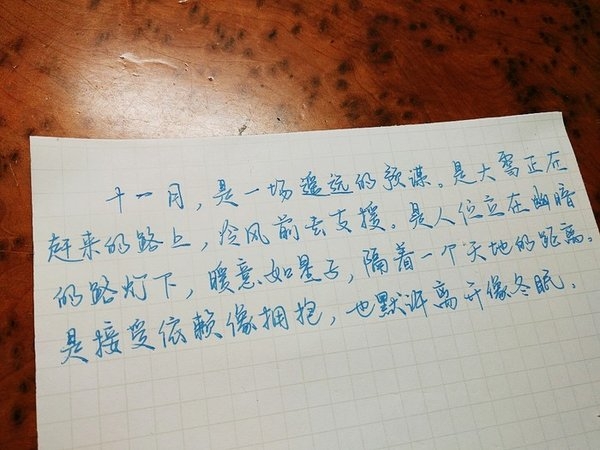 十一月，是一场遥远的预谋。是大雪正在
赶来的路上，冷风前去支援。是人位立在幽暗
的路灯下，暖意如星子，隔着一个天地的距离。
是接受依赖像拥抱，也默许离开像冬眠．